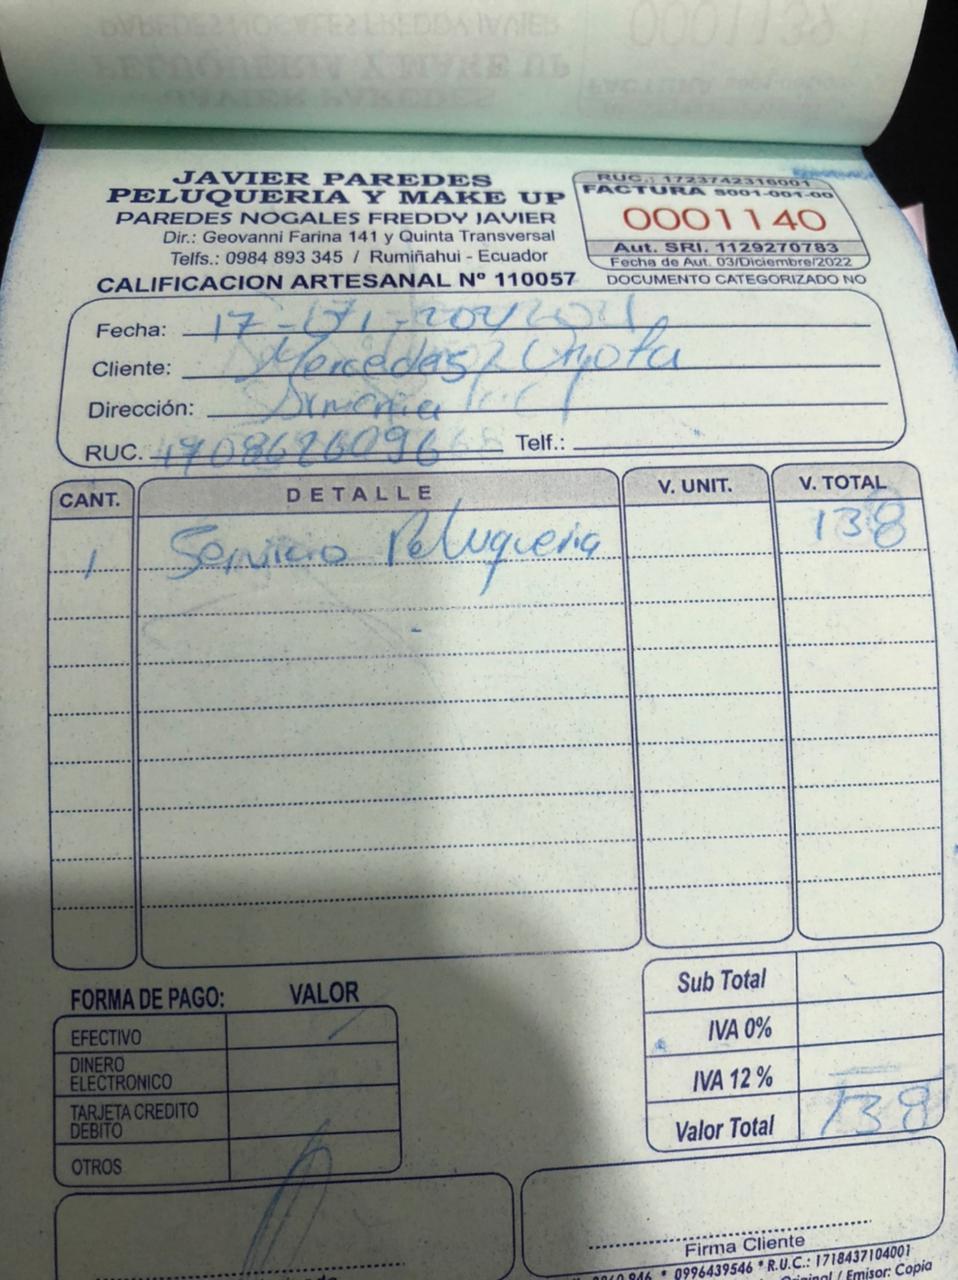 JAVIER PAREDES
PELUQUERIA Y MAKE UP
PAREDES NOGALES FREDDY JAVIER
Dir.: Geovanni Farina 141 y Quinta Transversal
Telfs.: 0984 893 345 / Rumiñahui - Ecuador
CALIFICACION ARTESANAL Nº 110057
RUC.: 1723742316001
FACTURA S001-001-00
0001140
Aut. SRI. 1129270783
Fecha de Aut. 03/Diciembre/2022
DOCUMENTO CATEGORIZADO NO
Fecha: 17-
Cliente: Mercedes
Dirección: Armenia
RUC. 1708626096 Telf.:
CANT. DETALLE V. UNIT. V. TOTAL
1 Servicio Peluqueria 138
FORMA DE PAGO: VALOR
EFECTIVO
DINERO ELECTRONICO
TARJETA CREDITO DEBITO
OTROS
Sub Total
IVA 0%
IVA 12 %
Valor Total 138
Firma Cliente
0996439546 * R.U.C.: 1718437104001
/ Emisor: Copia